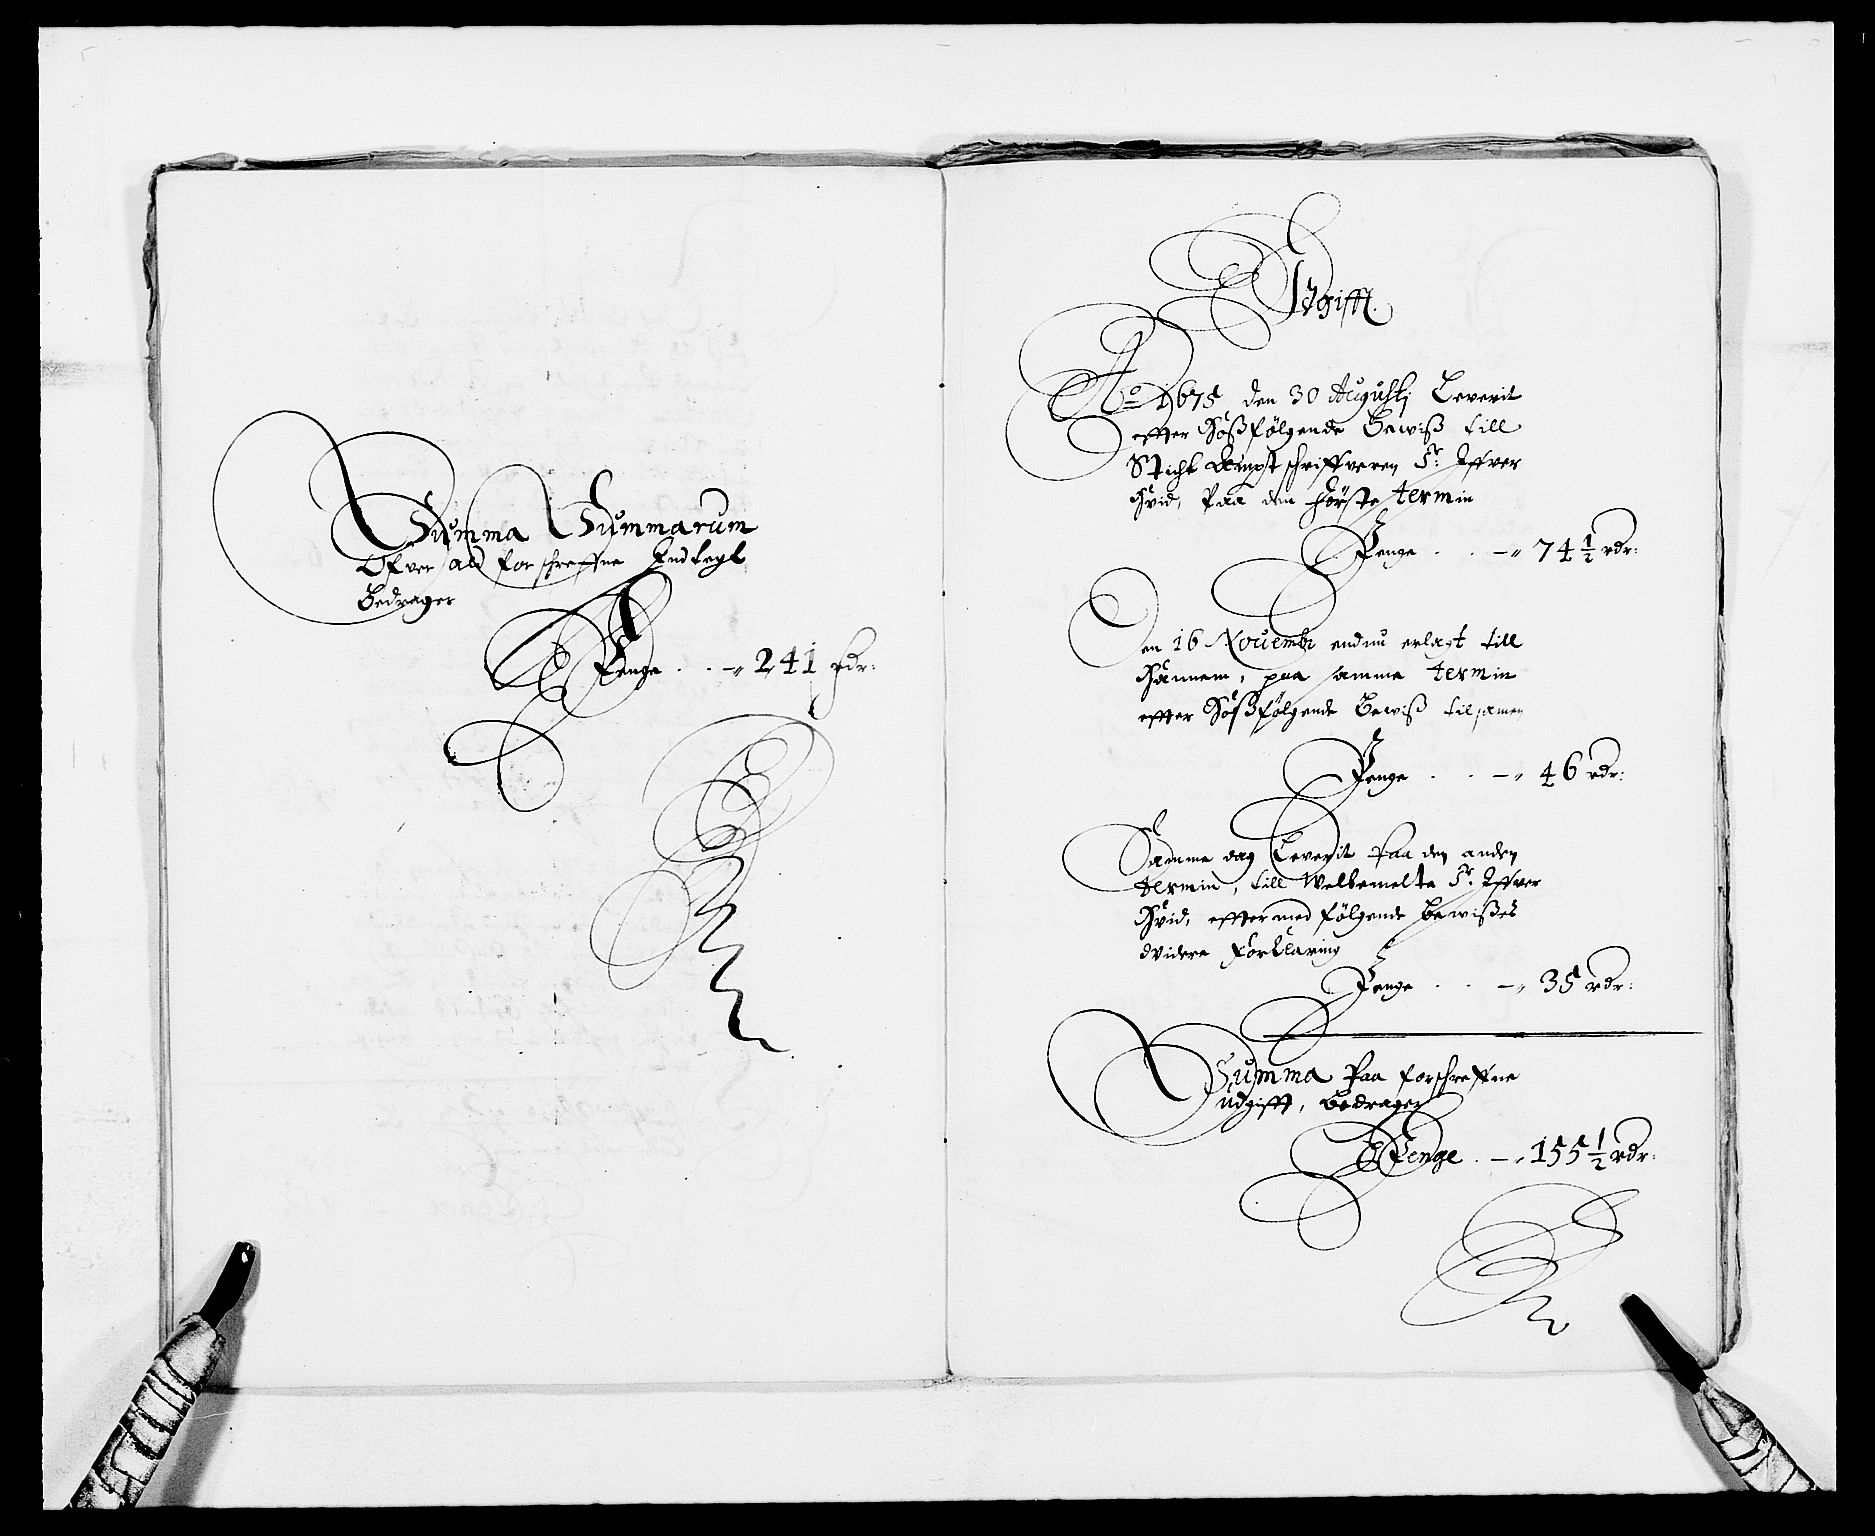 Summa Summarum
Ofver ald forschreffne Indtegt
Bedrager
Penge . . -„ 241 rdr:
Udgifft.
Ao 1675 den 30 Augustj Leverit
effter Hoßfølgende Bewiß till
Sticht Ampt schriffveren Sr: Iffver
Hvid, Paa den første termin
Penge . . -„ 74 1/2 rdr:
Den 16 Novembr endnu erlagt till
Hannem, paa samme termin
effter Hoßfølgende Bewiß tilsamen
Penge . . -„ 46 rdr:
Samme dag Leverit Paa den anden
termin, till Welbemelte Sr: Iffver
Hvid, effter med følgende bewißes
videre forklaring
Penge . . -„ 35 rdr:
Summa Paa forschreffne
udgifft, bedrager
Penge . -„ 155 1/2 rdr: